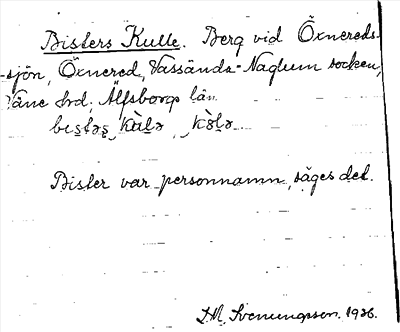 Bisters Kulle. Berg vid Öxnereds-
-sjön, Öxnered, Vassända-Naglum socken,
Väne hrd; Älfsborgs län.
Bister var personnamn, säges det.
D.M. Svenungsson. 1926.